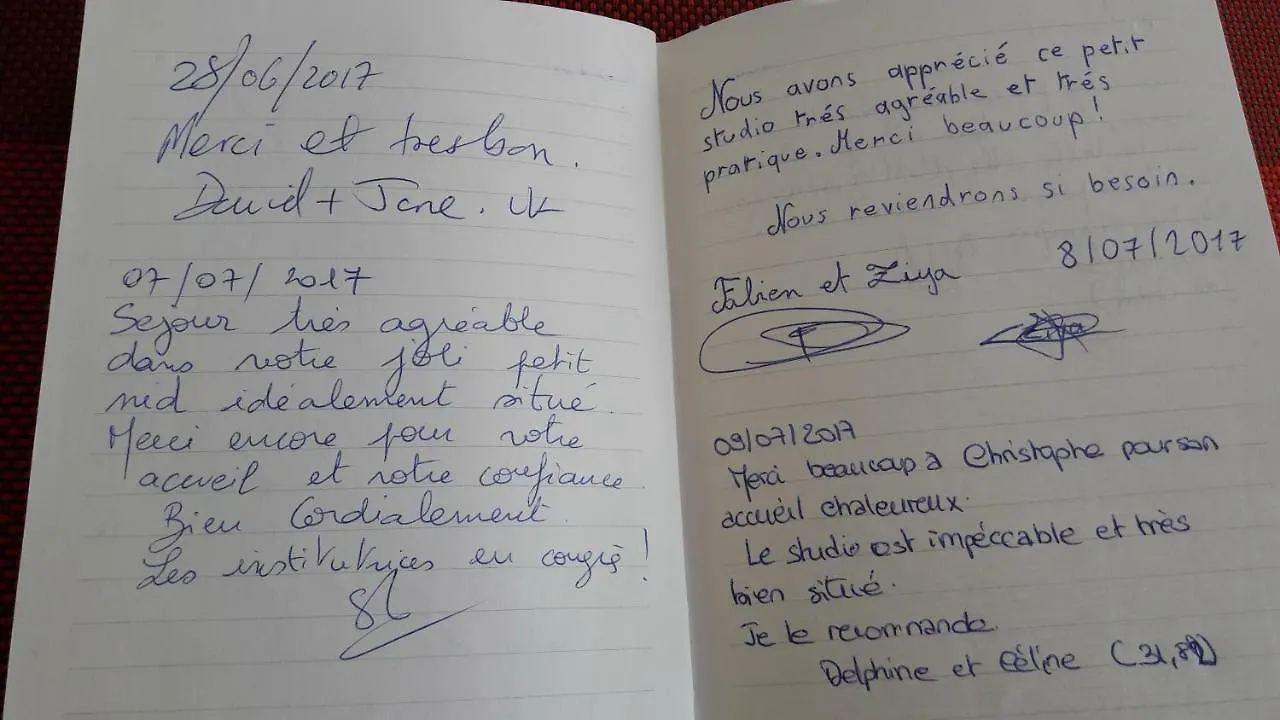 28/06/2017
Merci et tres bon.
David + Jane. UK
07/07/2017
Sejour très agréable
dans votre joli petit
nid idéalement situé.
Merci encore pour votre
accueil et votre confiance.
Bien Cordialement.
Les institutrices en congés!
Nous avons apprécié ce petit
studio trés agréable et trés
pratique. Merci beaucoup!
Nous reviendrons si besoin.
8/07/2017
et Ziya
Ziya
09/07/2017
Merci beaucoup à Christophe pour son
accueil chaleureux.
Le studio est impéccable et très
bien situé.
Je le recommande.
Delphine et Céline (31,